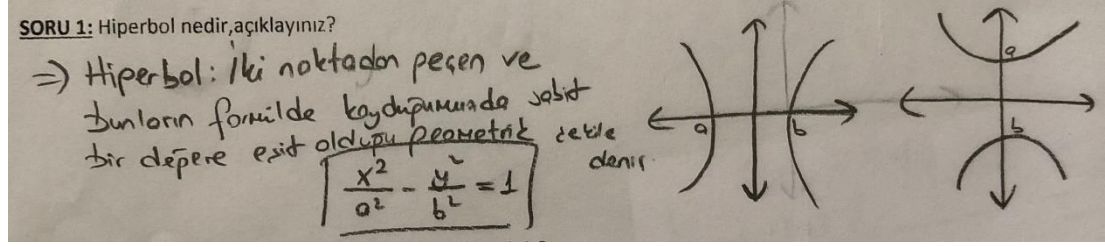 SORU 1: Hiperbol nedir,açıklayınız?
=) Hiperbol: İki noktadan geçen ve
bunların formülde koyduğumuzda sabit
bir değere eşit olduğu geometrik şekle
denir.
x²/a² - y²/b² = 1
a b
a
b